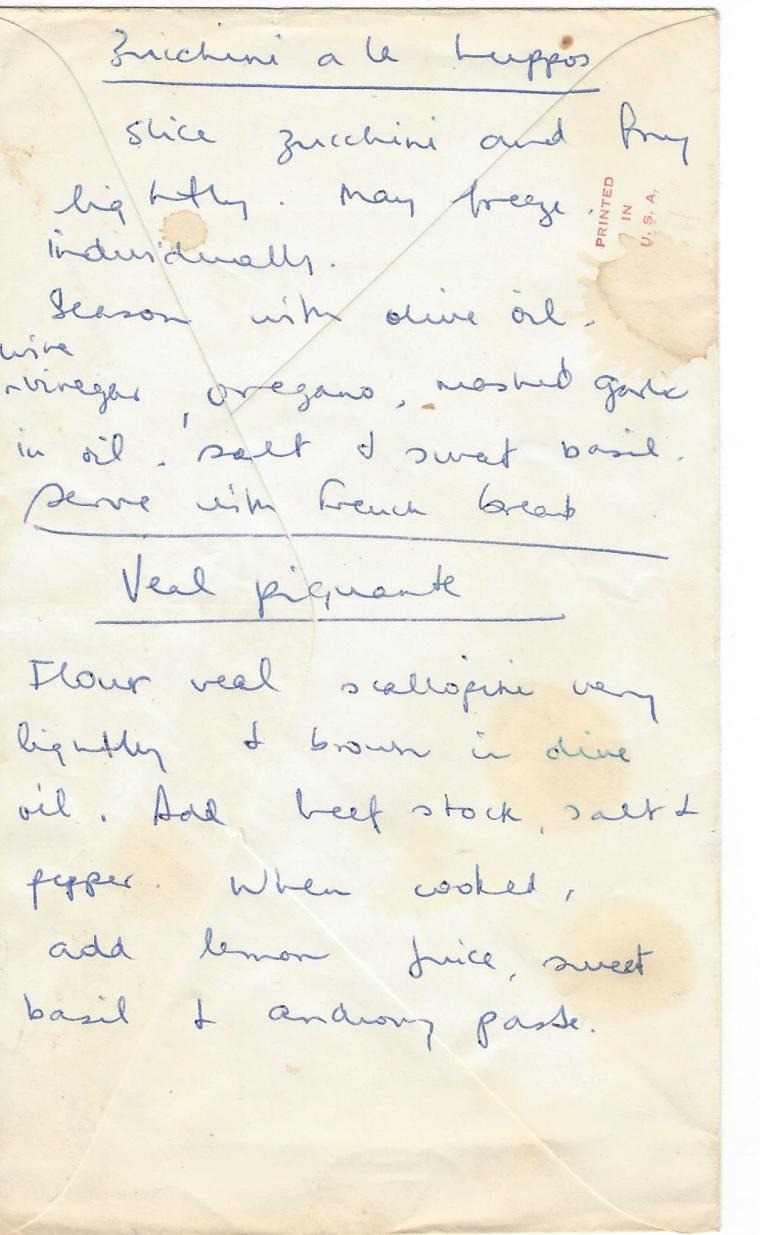 Zucchini a la
Slice zucchini and fry
lightly. May freeze.
individually.
Season with olive oil.
wine
vinegar, oregano, mashed garlic
in oil. salt & sweet basil.
serve with French bread
Veal piquante
Flour veal scallopine very
lightly & brown in olive
oil. Add beef stock, salt &
pepper. When cooked,
add lemon juice, sweet
basil & anchovy paste.
PRINTED
IN
U. S. A.